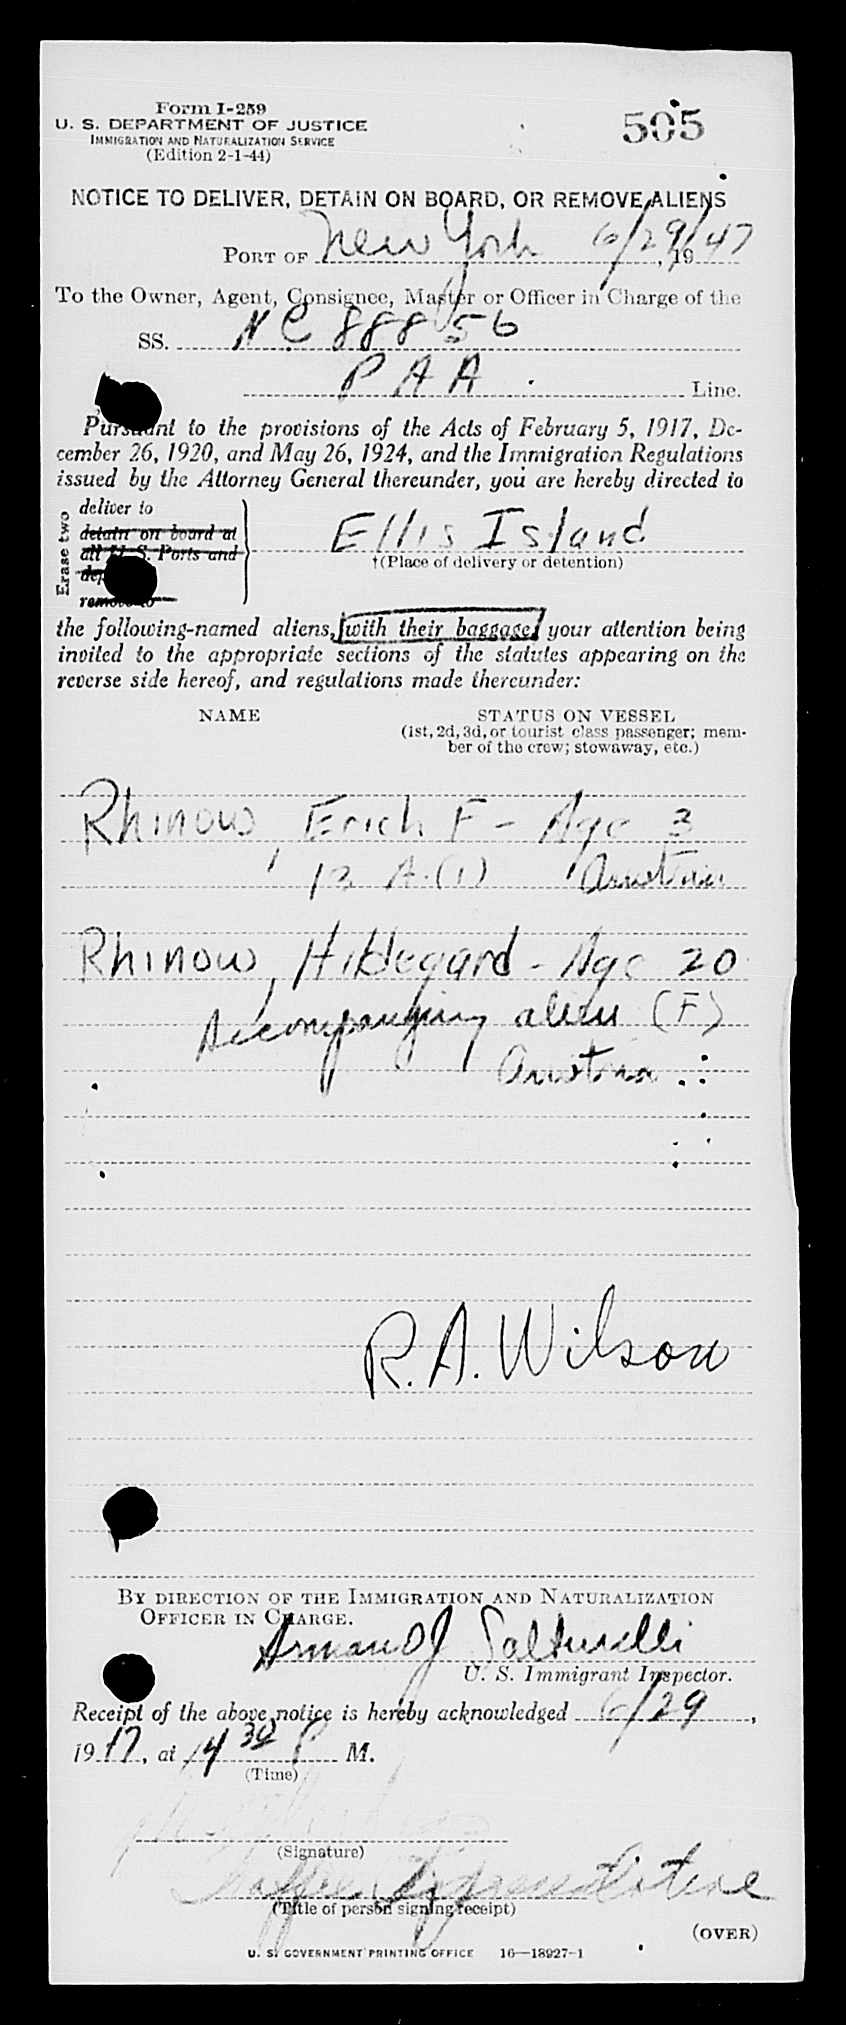 Form I-259
505
U. S. DEPARTMENT OF JUSTICE
IMMIGRATION AND NATURALIZATION SERVICE
(Edition 2-1-44)
NOTICE TO DELIVER, DETAIN ON BOARD, OR REMOVE ALIENS
PORT OF New York 6/29/47, 19
To the Owner, Agent, Consignee, Master or Officer in Charge of the
SS. NC 88856
PAA Line.
Pursuant to the provisions of the Acts of February 5, 1917, De-
cember 26, 1920, and May 26, 1924, and the Immigration Regulations
issued by the Attorney General thereunder, you are hereby directed to
Erase two
deliver to
detain on board at
all U. S. Ports and
dep
remove to
Ellis Island
†(Place of delivery or detention)
the following-named aliens, with their baggage, your attention being
invited to the appropriate sections of the statutes appearing on the
reverse side hereof, and regulations made thereunder:
NAME STATUS ON VESSEL
(1st, 2d, 3d, or tourist class passenger; mem-
ber of the crew; stowaway, etc.)
Rhinow, Erich F - Age 3
13 A.(1) Austria
Rhinow, Hildegard - Age 20
Accompanying alien (F)
Austria
R. A. Wilson
BY DIRECTION OF THE IMMIGRATION AND NATURALIZATION
OFFICER IN CHARGE.
Armand J
U. S. Immigrant Inspector.
Receipt of the above notice is hereby acknowledged 6/29,
19 47, at 4 30 P M.
(Time)
(Signature)
Traffic Representative
(Title of person signing receipt)
(OVER)
U. S. GOVERNMENT PRINTING OFFICE 16—18927-1